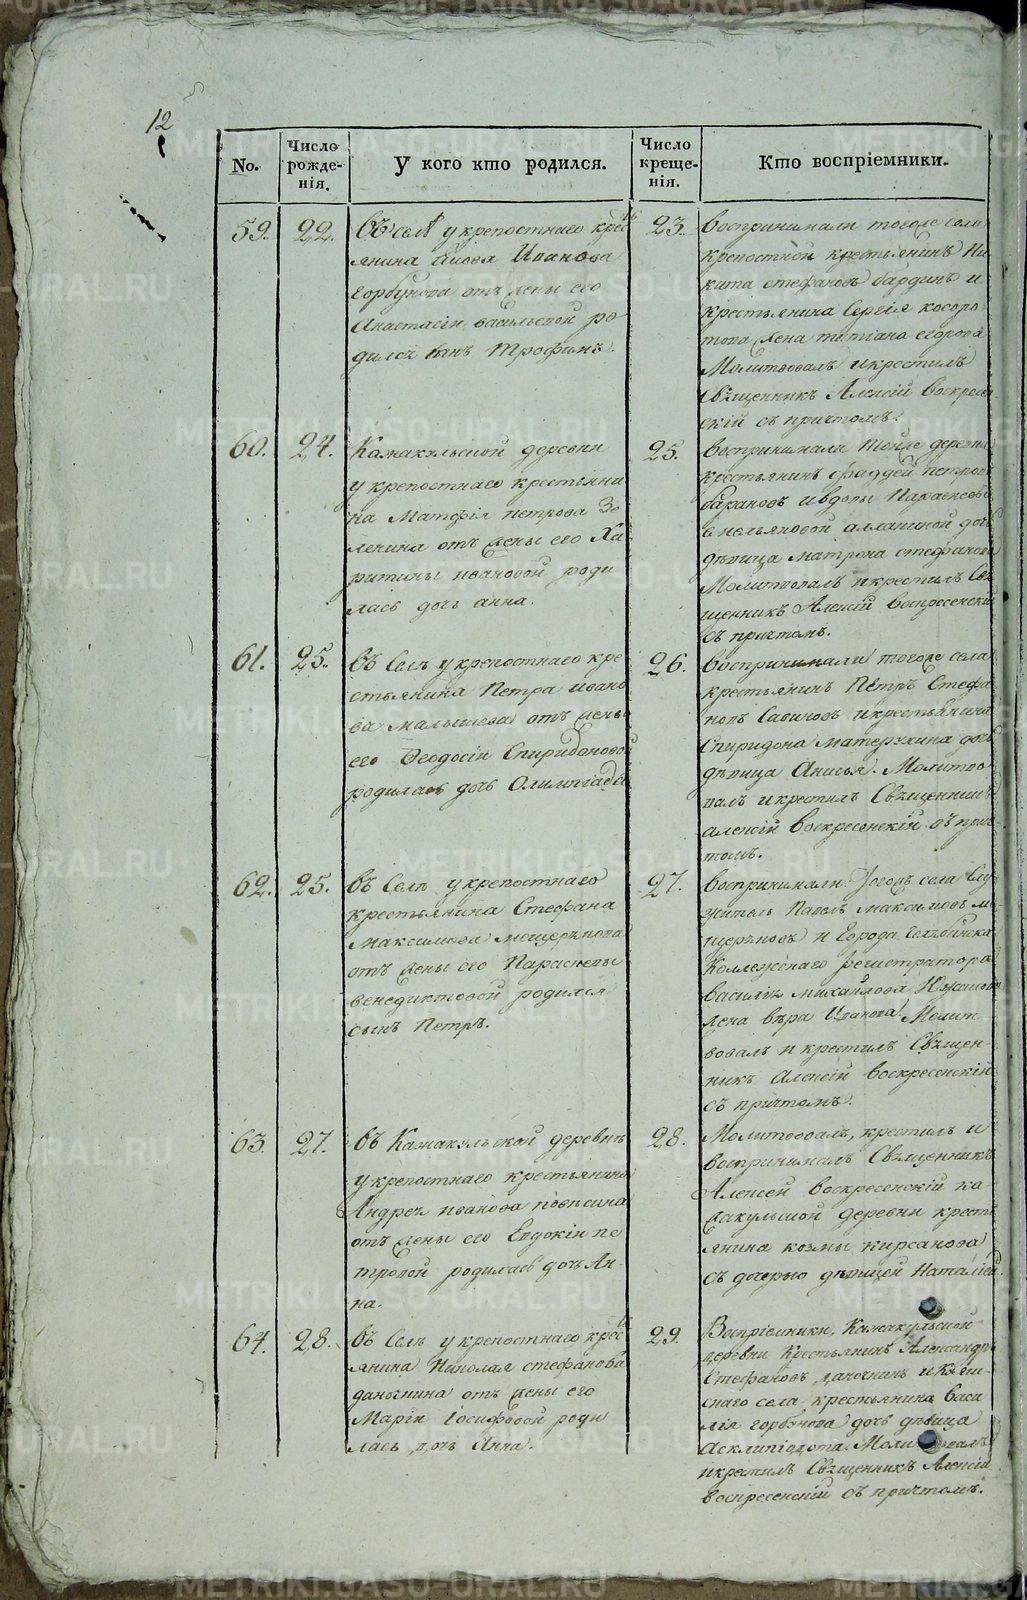 12
No.
Число рожде-нія.
У кого кто родился.
Число креще-нія.
Кто воспріемники.
59.
22.
Въ селѣ у крепостнаго крес
янина Ивана
Горбунова отъ жены его
Анастасіи васильевой ро
дился сынъ Трофимъ.
23.
воспринимали тогоже села
крепостной крестьянинъ Ни
кита стефановъ бардинъ и
крестьянина Сергія косоро
това жена татіана егорова
Молитвовалъ и крестилъ
Священникъ Алексій воскресен
скій съ причтомъ.
60.
24.
Кажакульской деревни
у крепостнаго крестьяни
на Матфія петрова Зо
ленина отъ жены его Ха
ритины ивановой роди
лась дочь анна.
25.
воспринимали тойже деревни
крестьянинъ фаддей петровъ
барановъ и вдовы
емельяновой дочь
дѣвица матрона стефанова
Молитвовалъ и крестилъ Свя
щенникъ Алексій воскресенскій
съ причтомъ.
61.
25.
въ Селѣ у крепостнаго кре
стьянина Петра ивано
ва малышева отъ жены
его Ѳеодосіи Спиридоновой
родилась дочь Олимпіада
26.
воспринимали тогоже села
крестьянинъ Петръ Стефа
новъ Савиновъ и крестьянина
Спиридона матерухина дочь
дѣвица Анисья. Молитво
валъ и крестилъ Священникъ
алексій воскресенскій съ прич
томъ.
62.
25.
въ Селѣ у крепостнаго
крестьянина Стефана
Максимова мещерякова
отъ жены его Параскевы
венедиктовой родился
сынъ Петръ.
27.
воспринимали: Тогожъ села слу
житель Павелъ максимовъ ме
щеряковъ и Города Челябинска
Коллежскаго регистратора
василія михайлова
жена вѣра Иванова. Молит
вовалъ и крестилъ Священ
никъ Алексій воскресенскій
съ причтомъ.
63.
27.
въ Кажакульской деревнѣ
у крепостнаго крестьянина
Андрея иванова
отъ жены его Евдокіи пе
тровой родилась дочь Ан
на.
28.
Молитвовалъ, крестилъ и
воспринималъ Священникъ
Алексей воскресенскій ка
жакульской деревни кресть
янина козмы кирсанова
съ дочерью дѣвицей Наталіей.
64.
28.
въ Селѣ у крепостнаго крес
янина Николая стефанова
даночкина отъ жены его
Маріи Іосифовой роди
лась дочь Анна.
29.
Воспріемники, Кажакульской
деревни Крестьянинъ Александръ
Стефановъ даночкинъ и
скаго села крестьянина Васи
лія горбунова дочь дѣвица
Асклипіодота. Молитвовалъ
и крестилъ Священникъ Алексій
воскресенскій съ причтомъ.
METRIKI.GASO-URAL.RU